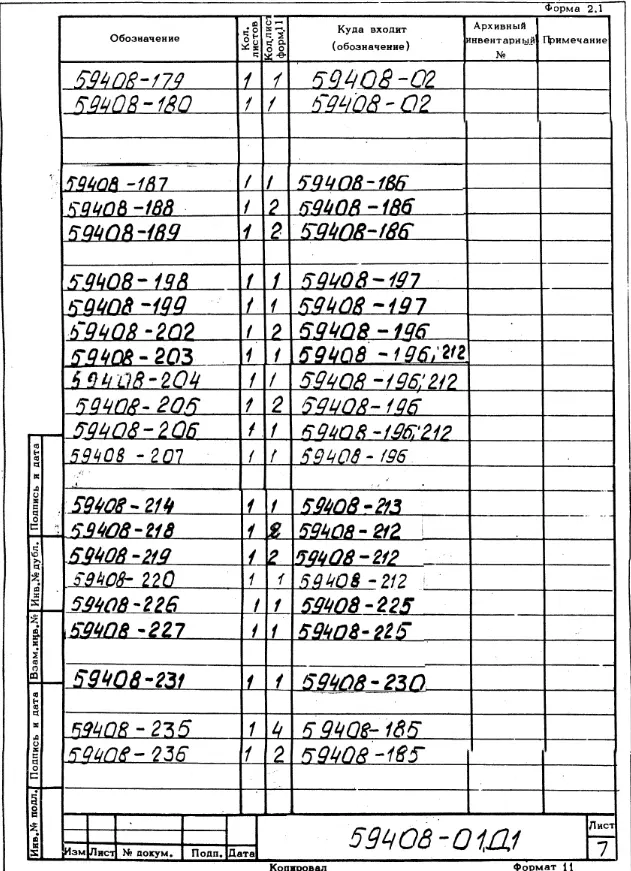 Форма 2.1
Обозначение Кол. листов Кол. лист форм. 11 Куда входит (обозначение) Архивный инвентарный № Примечание
59408-179 1 1 59408-02
59408-180 1 1 59408-02
59408-187 1 1 59408-186
59408-188 1 2 59408-186
59408-189 1 2 59408-186
59408-198 1 1 59408-197
59408-199 1 1 59408-197
59408-202 1 2 59408-196
59408-203 1 1 59408-196; 212
59408-204 1 1 59408-196; 212
59408-205 1 2 59408-196
59408-206 1 1 59408-196; 212
59408-207 1 1 59408-196
59408-214 1 1 59408-213
59408-218 1 2 59408-212
59408-219 1 2 59408-212
59408-220 1 1 59408-212
59408-226 1 1 59408-225
59408-227 1 1 59408-225
59408-231 1 1 59408-230
59408-235 1 4 59408-185
59408-236 1 2 59408-185
Подпись и дата
Инв.№ дубл.
Взам.инв.№
Подпись и дата
Инв.№ подл.
Изм Лист № докум. Подп. Дата
59408-01Д1
Лист
7
Копировал Формат 11